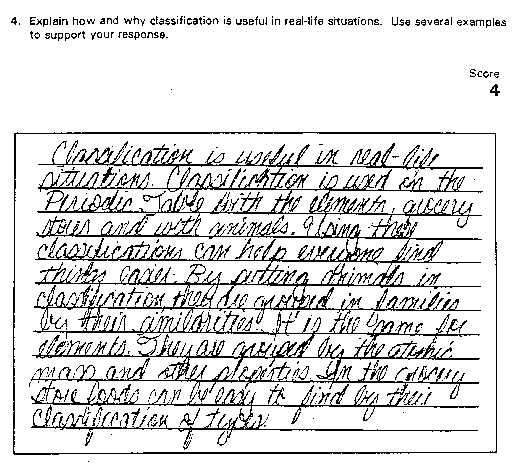 4. Explain how and why classification is useful in real-life situations. Use several examples
to support your response.
Score
4
Classification is useful in real-life
situations. Classification is used on the
Periodic Table with the elements, grocery
stores and with animals. Using these
classifications can help everyone find
things easier. By putting animals in
classification they are grouped in families
by their similarities. It is the same for
elements. They are grouped by the atomic
mass and other properties. In the grocery
store foods can be easy to find by their
classification of types.